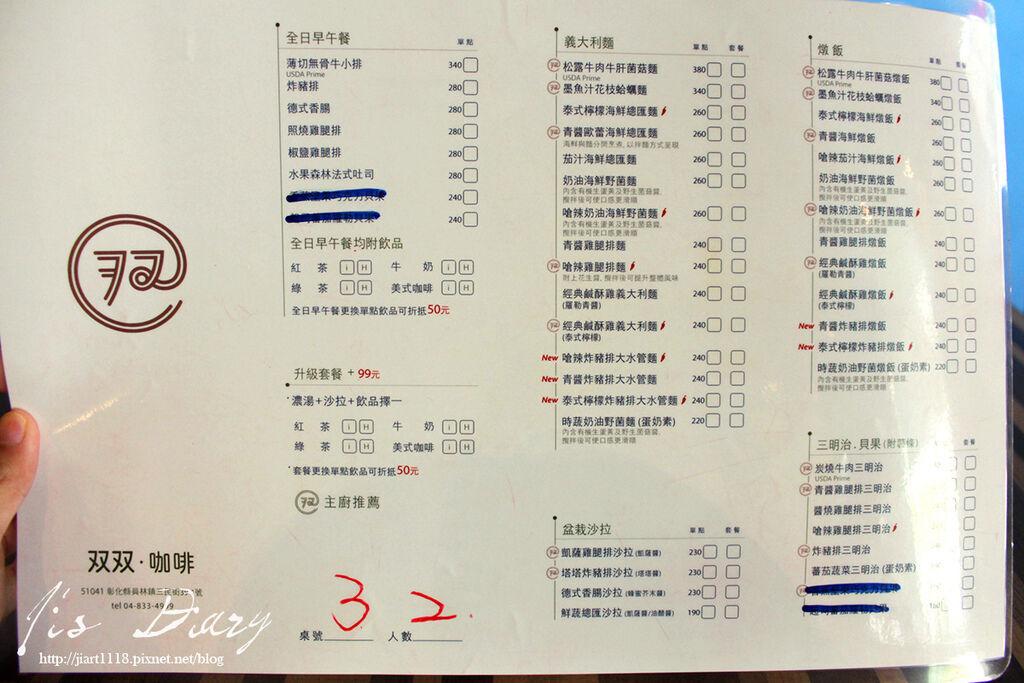 双双·咖啡
51041 彰化縣員林鎮三民街
號
tel 04-833-4909
Ji's Diary
http://jiart1118.pixnet.net/blog
全日早午餐 單點
薄切無骨牛小排 340
USDA Prime
炸豬排 280
德式香腸 280
照燒雞腿排 280
椒鹽雞腿排 280
水果森林法式吐司 280
240
240
全日早午餐均附飲品
紅 茶 i H 牛 奶 i H
綠 茶 i H 美式咖啡 i H
全日早午餐更換單點飲品可折抵50元
升級套餐 + 99元
*濃湯+沙拉+飲品擇一
紅 茶 i H 牛 奶 i H
綠 茶 i H 美式咖啡 i H
*套餐更換單點飲品可折抵50元
主廚推薦
桌號 3 人數 2
義大利麵 單點 套餐
松露牛肉牛肝菌菇麵 380
USDA Prime
墨魚汁花枝蛤蠣麵 340
泰式檸檬海鮮總匯麵 260
青醬歐蕾海鮮總匯麵 260
海鮮與麵分開烹煮, 以拌麵方式呈現
茄汁海鮮總匯麵 260
奶油海鮮野菌麵 260
內含有機生蛋黃及野生菌菇醬,
攪拌後可使口感更滑順
嗆辣奶油海鮮野菌麵 260
內含有機生蛋黃及野生菌菇醬,
攪拌後可使口感更滑順
青醬雞腿排麵 240
嗆辣雞腿排麵 240
附上花生醬, 攪拌後可提升整體風味
經典鹹酥雞義大利麵 240
(羅勒青醬)
經典鹹酥雞義大利麵 240
(泰式檸檬)
New 嗆辣炸豬排大水管麵 240
New 青醬炸豬排大水管麵 240
New 泰式檸檬炸豬排大水管麵 240
時蔬奶油野菌麵 (蛋奶素) 220
內含有機生蛋黃及野生菌菇醬,
攪拌後可使口感更滑順
盆栽沙拉 單點 套餐
凱薩雞腿排沙拉 (凱薩醬) 230
塔塔炸豬排沙拉 (塔塔醬) 230
德式香腸沙拉 (蜂蜜芥末醬) 230
鮮蔬總匯沙拉 (凱薩醬/油醋醬) 190
燉飯 單點 套餐
松露牛肉牛肝菌菇燉飯 380
USDA Prime
墨魚汁花枝蛤蠣燉飯 340
泰式檸檬海鮮燉飯 260
青醬海鮮燉飯 260
嗆辣茄汁海鮮燉飯 260
奶油海鮮野菌燉飯 260
內含有機生蛋黃及野生菌菇醬,
攪拌後可使口感更滑順
嗆辣奶油海鮮野菌燉飯 260
內含有機生蛋黃及野生菌菇醬,
攪拌後可使口感更滑順
青醬雞腿排燉飯 240
經典鹹酥雞燉飯 240
(羅勒青醬)
經典鹹酥雞燉飯 240
(泰式檸檬)
New 青醬炸豬排燉飯 240
New 泰式檸檬炸豬排燉飯 240
時蔬奶油野菌燉飯 (蛋奶素) 220
內含有機生蛋黃及野生菌菇醬,
攪拌後可使口感更滑順
三明治.貝果 (附薯條) 單點 套餐
炭燒牛肉三明治
USDA Prime
青醬雞腿排三明治
醬燒雞腿排三明治
嗆辣雞腿排三明治
炸豬排三明治
蕃茄蔬菜三明治 (蛋奶素)